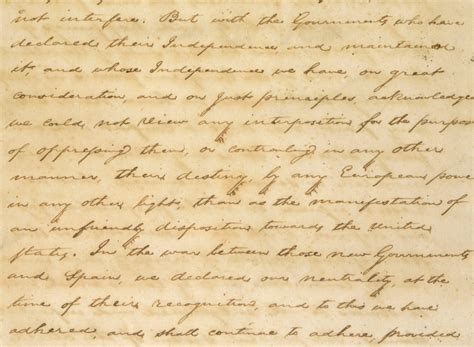 not interfere. But with the Governments who have
declared their Independence, and maintained
it, and whose Independence we have, on great
consideration, and on just principles, acknowledged
we could not view any interposition for the purpose
of oppressing them, or controling in any other
manner, their destiny, by any European power
in any other light, than as the manifestation of
an unfriendly disposition towards the United
States. In the war between those new Governments
and Spain, we declared our neutrality, at the
time of their recognition, and to this we have
adhered, and shall continue to adhere, provided